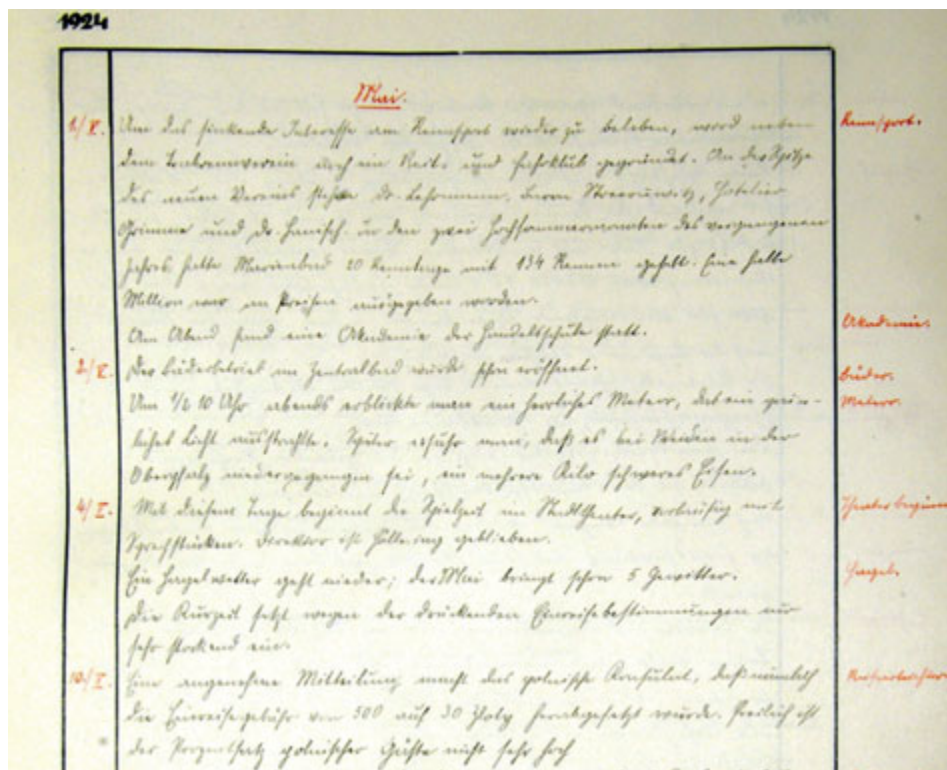 1924
Mai.
1/V. Um das sinkende Interesse am Rennsport wieder zu beleben, ward neben Rennsport.
dem Lokalrennverein noch ein Reit- und Fahrklub gegründet. An der Spitze
des neuen Vereins stehen Dr. Lehrmann, Baron Streeruwitz, Hotelier
Grimme und Dr. Hanisch. In den zwei Hochsommermonaten des vergangenen
Jahres hatte Marienbad 20 Renntage mit 134 Rennen gehabt. Eine halbe
Million war an Preisen ausgegeben worden.
Am Abend fand eine Akademie der Handelsschule statt. Akademie.
2/V. Der Bäderbetrieb im Zentralbad wurde schon eröffnet. Bäder.
Um 1/2 10 Uhr abends erblickte man ein herrliches Meteor, das ein grün- Meteor.
liches Licht ausstrahlte. Später erfuhr man, daß es bei Weiden in der
Oberpfalz niedergegangen sei, ein mehrere Kilo schweres Eisen.
4/V. Mit diesem Tage beginnt die Spielzeit im Stadttheater, vorläufig mit Theaterbeginn
Sprechstücken. Direktor ist Höllering geblieben.
Ein Hagelwetter geht nieder; der Mai bringt schon 5 Gewitter. Hagel.
Die Kurzeit setzt wegen der drückenden Einreisebestimmungen nur
sehr stockend ein.
10/V. Eine angenehme Mitteilung macht das polnische Konsulat, daß nämlich
die Einreisegebühr von 500 auf 30 Zloty herabgesetzt wurde. Freilich ist
der Prozentsatz polnischer Gäste nicht sehr hoch